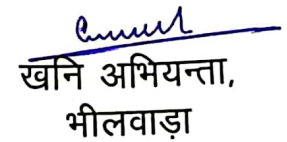 खनि अभियन्ता,
भीलवाड़ा